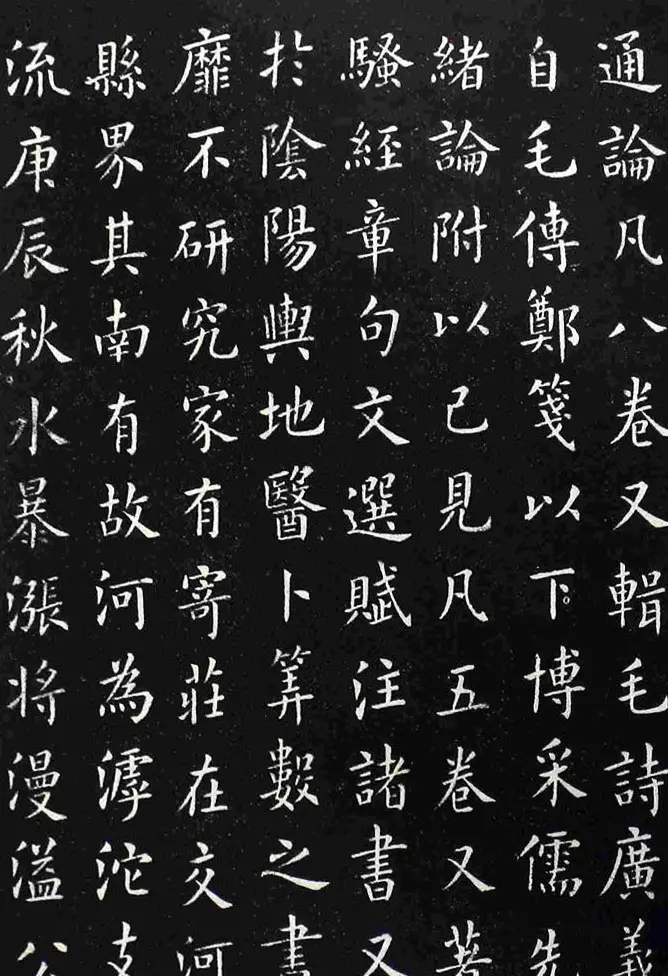 通論凡八卷又輯毛詩廣義
自毛傳鄭箋以下博采儒先
緒論附以己見凡五卷又著
騷經章句文選賦注諸書又
於陰陽輿地醫卜筭數之書
靡不研究家有寄莊在交河
縣界其南有故河為滹沱支
流庚辰秋水暴漲將漫溢公